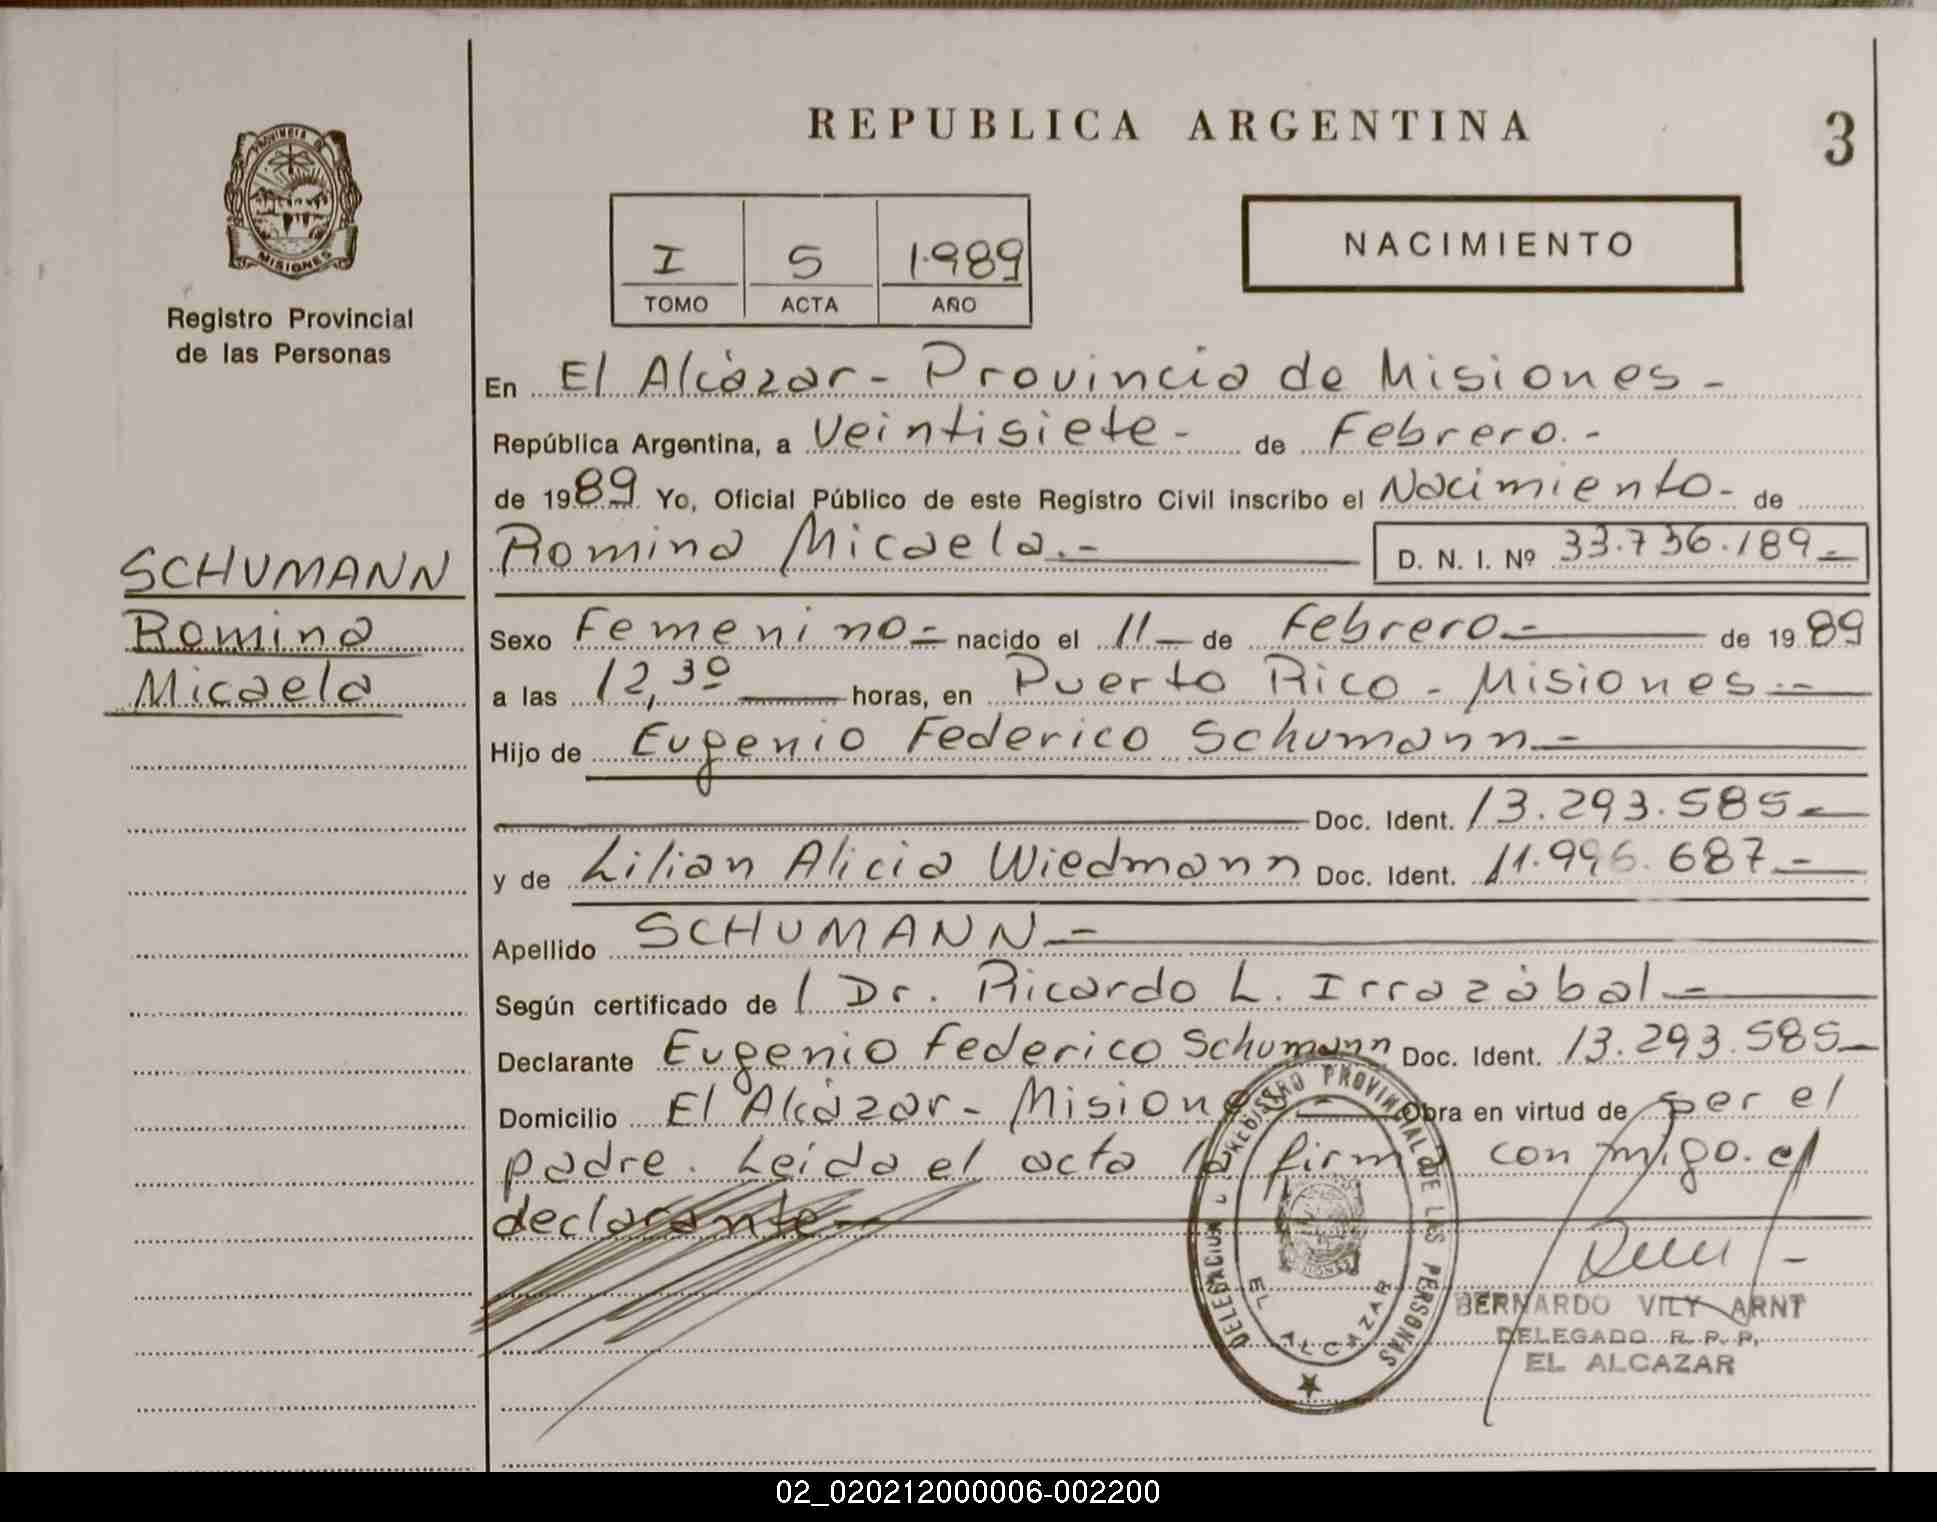 REPUBLICA ARGENTINA
3
PROVINCIA DE
MISIONES
Registro Provincial
de las Personas
I 5 1.989
TOMO ACTA AÑO
NACIMIENTO
En El Alcázar - Provincia de Misiones -
República Argentina, a Veintisiete - de Febrero. -
de 1989 Yo, Oficial Público de este Registro Civil inscribo el Nacimiento - de
Romina Micaela. - D. N. I. Nº 33.736.189 -
SCHUMANN
Romina
Micaela
Sexo Femenino - nacido el 11 - de Febrero - de 1989
a las 12,30 horas, en Puerto Rico - Misiones -
Hijo de Eugenio Federico Schumann -
Doc. Ident. 13.293.585 -
y de Lilian Alicia Wiedmann Doc. Ident. 11.996.687 -
Apellido SCHUMANN -
Según certificado de l Dr. Ricardo L. Irrazábal -
Declarante Eugenio Federico Schumann Doc. Ident. 13.293.585 -
Domicilio El Alcázar - Misiones Obra en virtud de ser el
padre. Leída el acta la firma conmigo el
declarante
DELEGACION REGISTRO PROVINCIAL DE LAS PERSONAS
EL ALCAZAR
BERNARDO VILY ARNT
DELEGADO R. P. P.
EL ALCAZAR
02_020212000006-002200